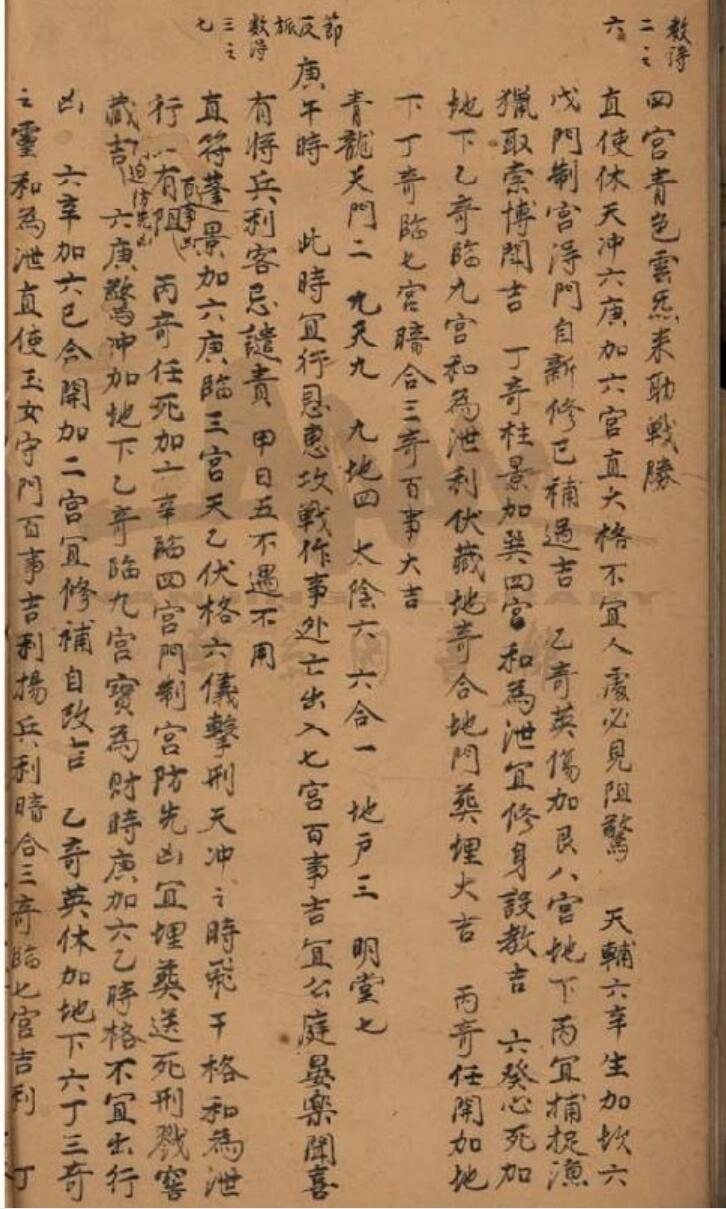 数得
二之
六
四宫青色雲炁来助戰勝
直使休天冲六庚加六宫直大格不宜人處必見阻驚　天輔六辛生加坎六
戊門制宫得門自新修已補過吉　乙奇英傷加艮八宫地下丙宜捕捉漁
獵取索博閗吉　丁奇柱景加巽四宫和為泄宜修身設教吉　六癸心死加
地下乙奇臨九宫和為泄利伏藏地奇合地門葬埋大吉　丙奇任開加地
下丁奇臨七宫暗合三奇百事大吉
青龍天門二　九天九　九地四　太陰六　六合一　地户三　明堂七
節
反
旅
数得
三之
七
庚午時　此時宜行恩惠攻戰作事处亡出入七宫百事吉宜公庭晏樂聞喜
有将兵利客忌譴責　甲日五不遇不用
直符蓬景加六庚臨三宫天乙伏格六儀擊刑天冲之時飛干格和為泄
行一有阻百事凶　丙奇任死加六辛臨四宫門制宫防先凶宜埋葬送死刑戮窖
藏吉迫防先凶　六庚驚冲加地下乙奇臨九宫寳為財時庚加六乙時格不宜出行
凶　六辛加六已合開加二宫宜修補自改吉　乙奇英休加地下六丁三奇
之靈和為泄直使玉女守門百事吉利揚兵利暗合三奇臨七宫吉利　丁